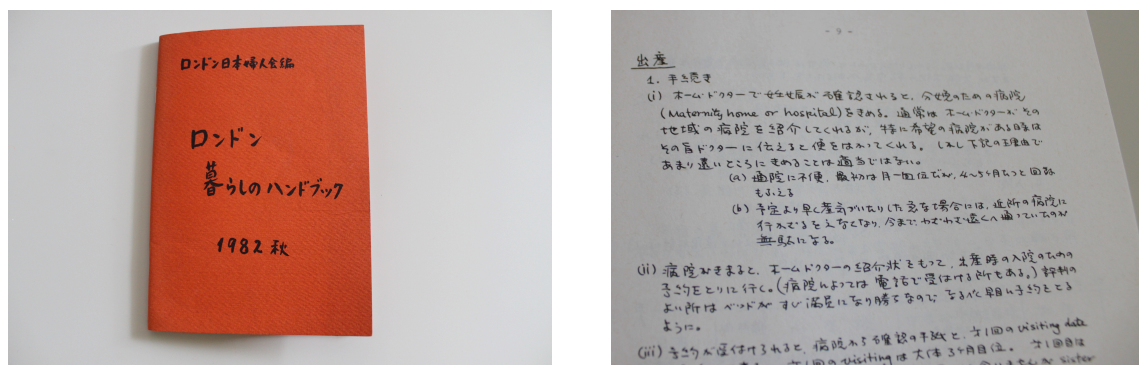 ロンドン日本婦人会編
ロンドン
暮らしのハンドブック
1982 秋
- 9 -
出産
1. 手続き
(i) ホームドクターで妊娠が確認されると、分娩のための病院
(Maternity home or hospital)をきめる。通常はホームドクターがその
地域の病院を紹介してくれるが、特に希望の病院がある時は
その旨ドクターに伝えると便をはかってくれる。しかし下記の理由で
あまり遠いところにきめることは適当ではない。
(a) 通院に不便、最初は月一回位だが、4〜5ヶ月たつと回数
もふえる
(b) 予定より早く産気づいたりした急な場合には、近所の病院に
行かざるをえなくなり、今までわざわざ遠くへ通っていたのが
無駄になる。
(ii) 病院がきまると、ホームドクターの紹介状をもって、出産時の入院のための
予約をとりに行く。(病院によっては電話で受付ける所もある。)評判の
よい所はベッドがすぐ満員になり勝ちなので、なるべく早目に予約をとる
ように。
(iii) 予約が受付けられると、病院から確認の手紙と、第1回のvisiting date
第1回のvisitingは大体3ヶ月目位。第1回目は
sister